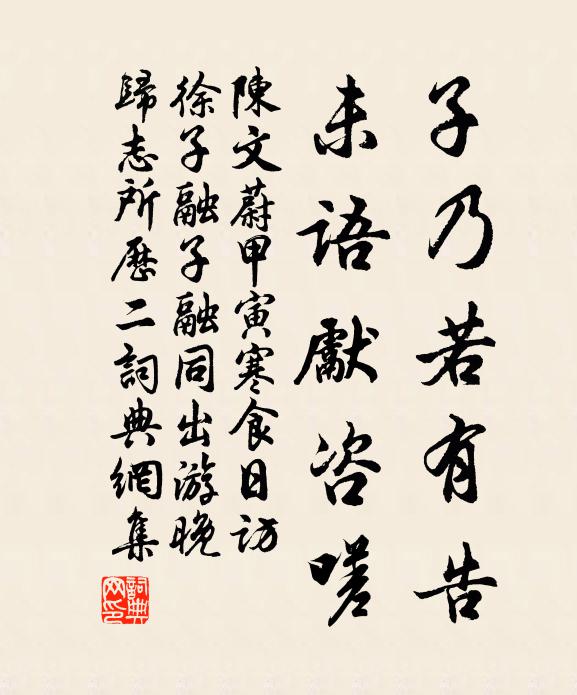 子乃若有告
未語獻咨嗟
陳文蔚甲寅寒食日訪
徐子融子融同出游晚
歸志所歷二詞典網集
詞典網印